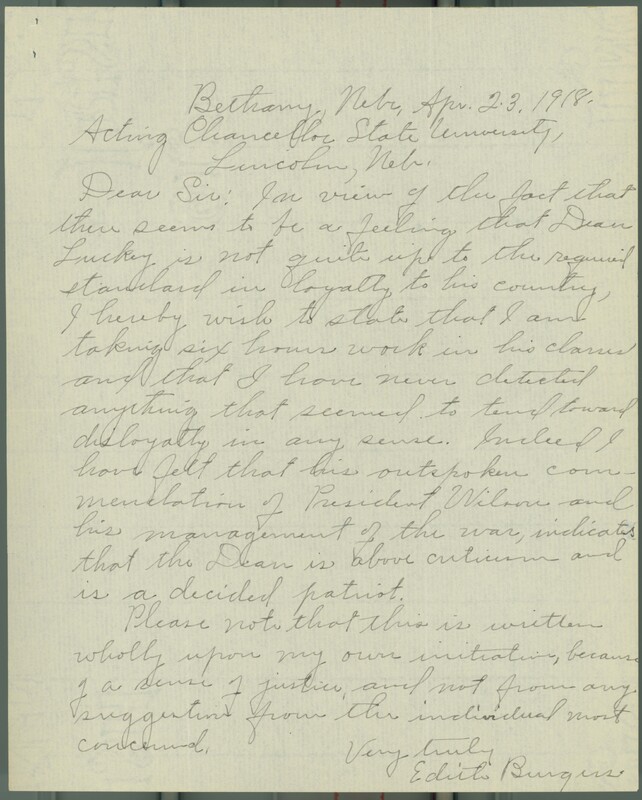 Bethany, Nebr, Apr. 23, 1918.
Acting Chancellor State University,
Lincoln, Neb.
Dear Sir: In view of the fact that
there seems to be a feeling that Dean
Luckey is not quite up to the required
standard in loyalty to his country,
I hereby wish to state that I am
taking six hours work in his classes
and that I have never detected
anything that seemed to tend toward
disloyalty in any sense. Indeed I
have felt that his outspoken com-
mendation of President Wilson and
his management of the war, indicates
that the Dean is above criticism and
is a decided patriot.
Please note that this is written
wholly upon my own initiative, because
of a sense of justice, and not from any
suggestion from the individual most
concerned.
Very truly
Edith Burgess